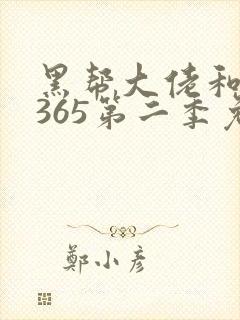 黑帮大佬和
365第二季
鄭小彦